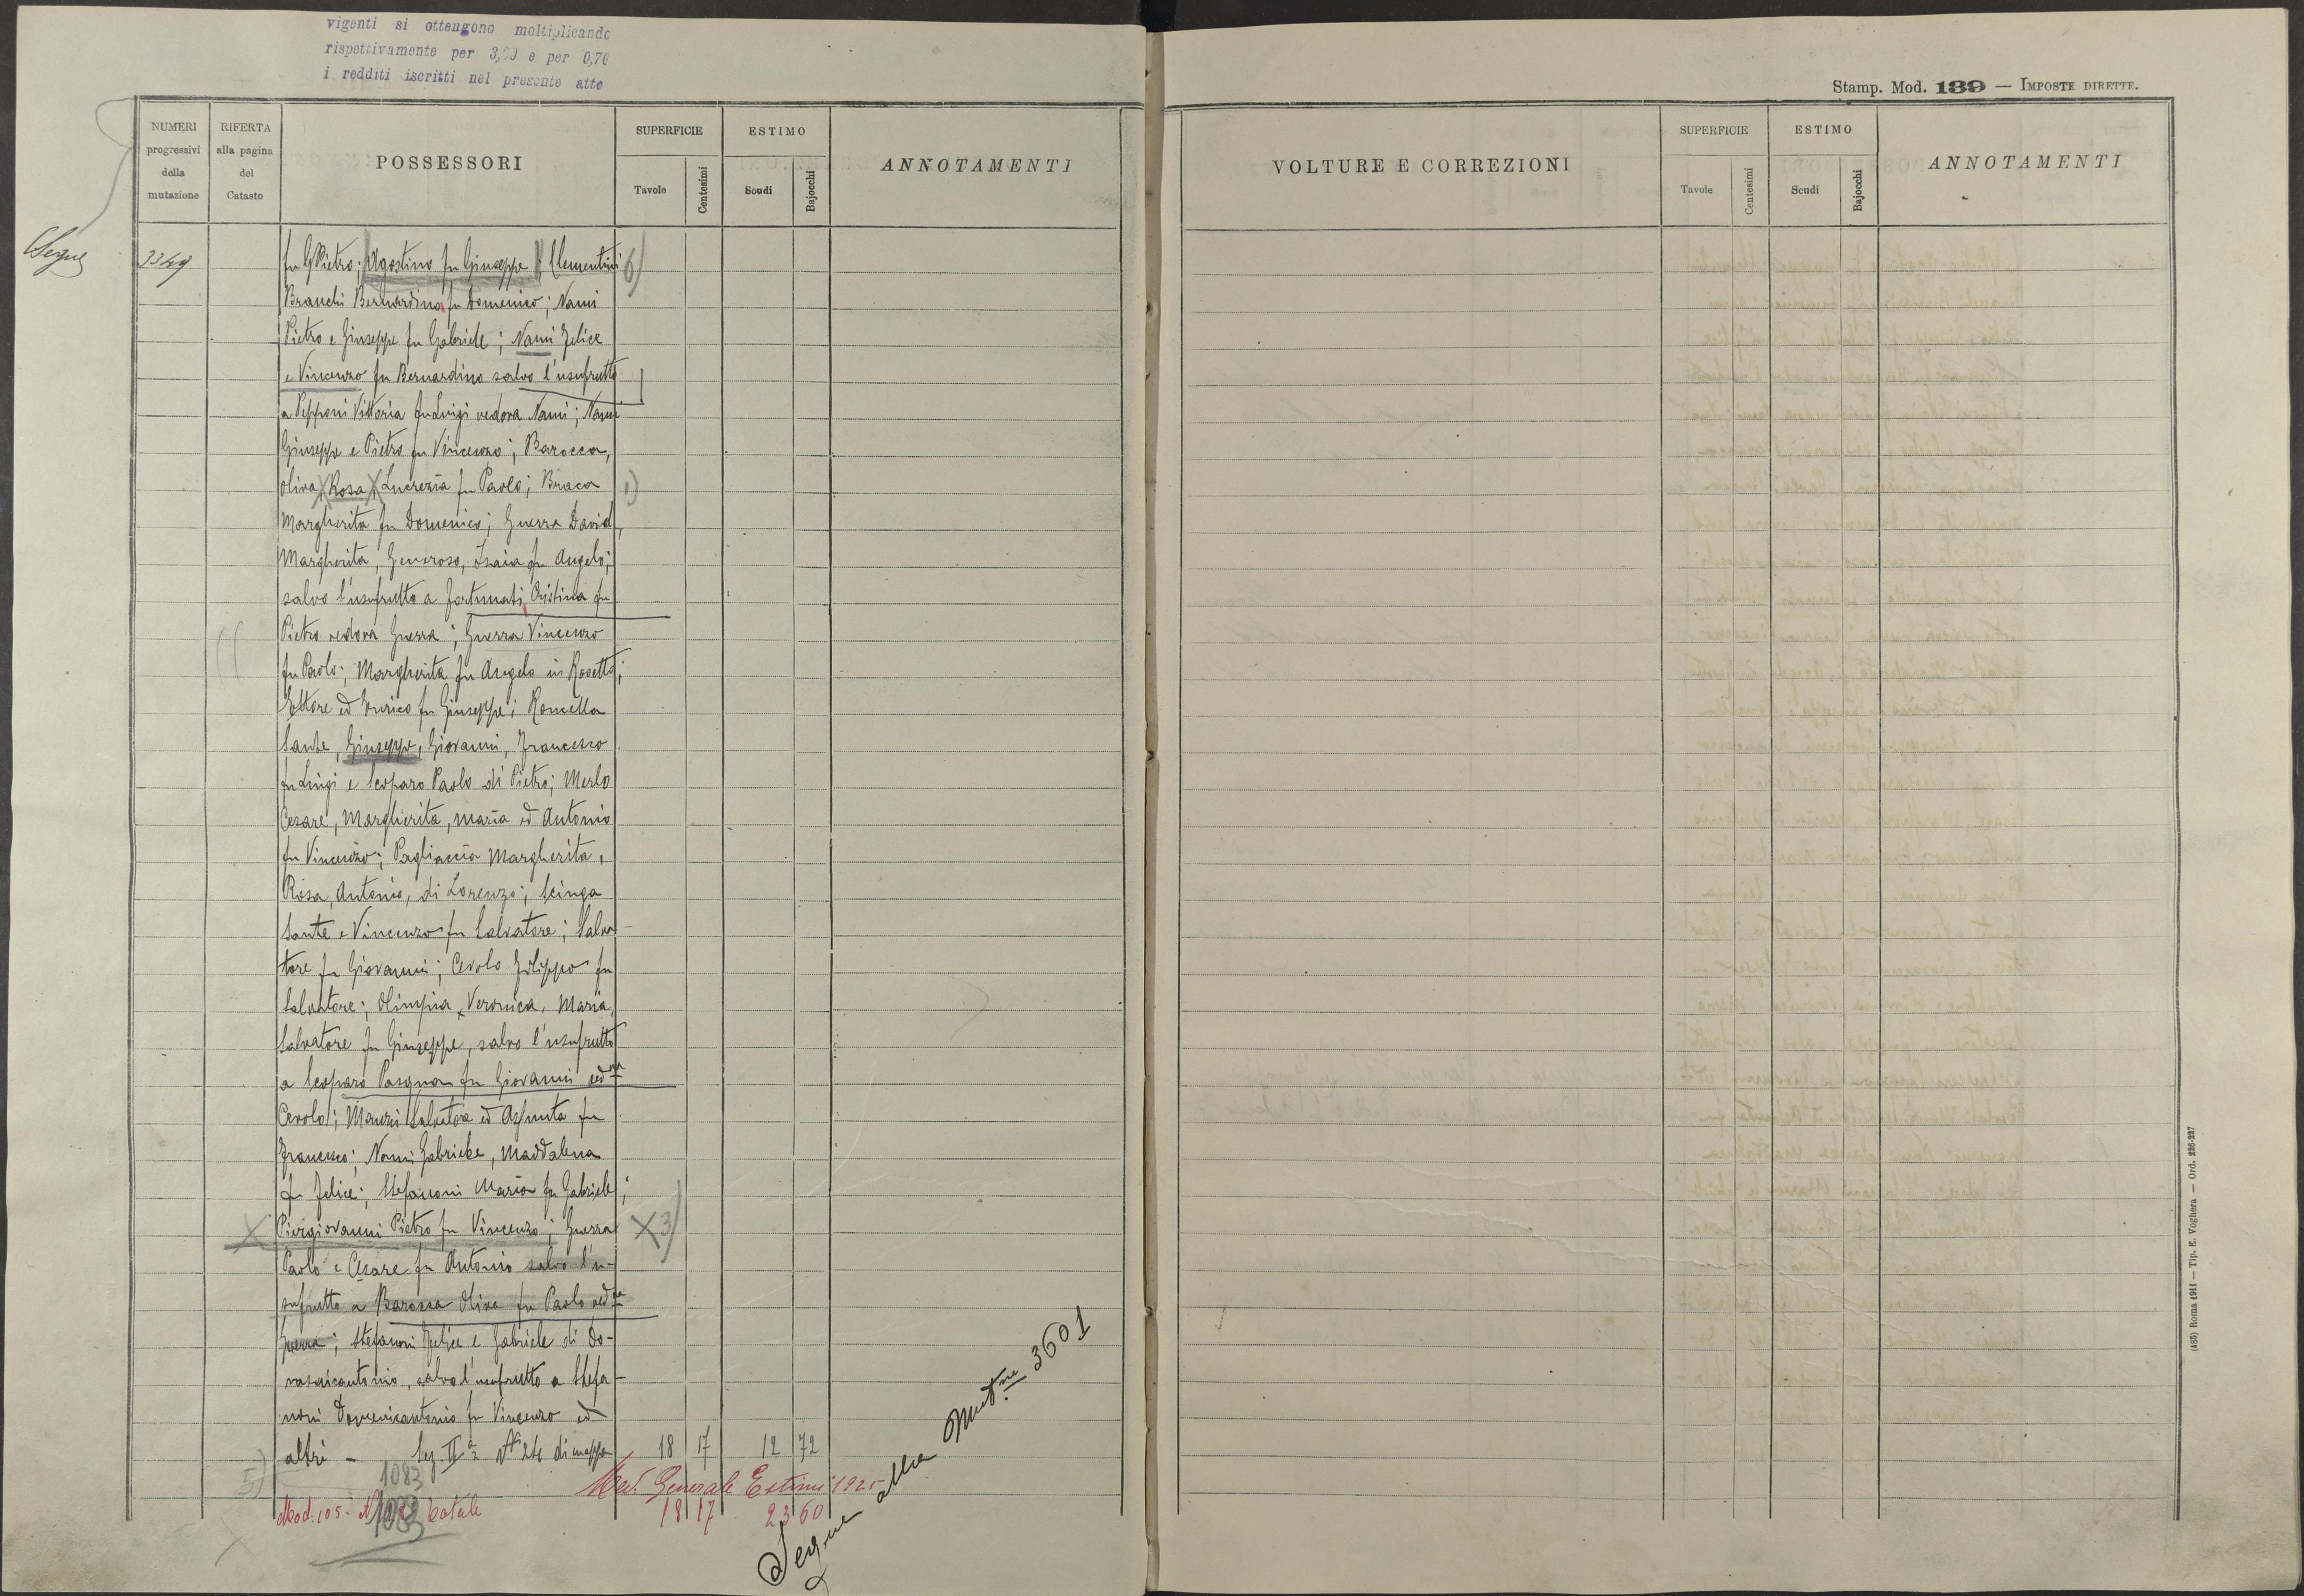 vigenti si ottengono moltiplicando
rispettivamente per 3, e per 0,70
i redditi iscritti nel presente atto
Stamp. Mod. 139 — IMPOSTE DIRETTE.
NUMERI progressivi della mutazione
RIFERTA alla pagina del Catasto
POSSESSORI
SUPERFICIE
Tavole
Centesimi
ESTIMO
Scudi
Bajocchi
ANNOTAMENTI
VOLTURE E CORREZIONI
SUPERFICIE
Tavole
Centesimi
ESTIMO
Scudi
Bajocchi
ANNOTAMENTI
Segue
2349 fu Pietro; Agostino fu Giuseppe; Clementini 6)
Branchi Bernardina fu Domenico; Nami
Pietro e Giuseppe fu Gabriele; Nami Felice
e Vincenzo fu Bernardino salvo l'usufrutto
a Pepponi Vittoria fu Luigi vedova Nami; Nami
Giuseppe e Pietro fu Vincenzo; Barocca,
Oliva, Rosa, Lucrezia fu Paolo; Braca 1)
Margherita fu Domenico; Guerra David,
Margherita, Generoso, Isaia fu Angelo;
salvo l'usufrutto a Fortunati Cristina fu
Pietro vedova Guerra; Guerra Vincenzo
fu Paolo; Margherita fu Angelo in Rosetto;
Ettore ed Enrico fu Giuseppe; Roncella
Sante, Giuseppe, Giovanni, Francesco
fu Luigi e Scoparo Paolo di Pietro; Merlo
Cesare, Margherita, Maria ed Antonio
fu Vincenzo; Pagliaccia Margherita,
Rosa, Antonio, di Lorenzo; Scinga
Sante e Vincenzo fu Salvatore; Salva-
tore fu Giovanni; Cerolo Filippo fu
Salvatore; Olimpia, Veronica, Maria,
Salvatore fu Giuseppe, salvo l'usufrutto
a Scoparo Pasqua fu Giovanni ved.va
Cerolo; Manzi Salvatore ed Assunta fu
Francesco; Nami Gabriele, Maddalena
fu Felice; Stefanoni Maria fu Gabriele;
X Piergiovanni Pietro fu Vincenzo; Guerra X 3)
Paolo e Cesare fu Antonio salvo l'u-
sufrutto a Barocca Oliva fu Paolo ved.va
Guerra; Stefanoni Felice e Gabriele di Do-
menicantonio, salvo l'usufrutto a Stefa-
noni Domenicantonio fu Vincenzo ed
altri - Sez. IIa N° 24 di mappa 18 17 12 72
5) 1083
Rev. Generale Estimi 1925
Mod. 105 1083 totale 18 17 23 60
Segue alla Mut.ne 3601
(485) Roma 1911 — Tip. E. Voghera — Ord. 226-227